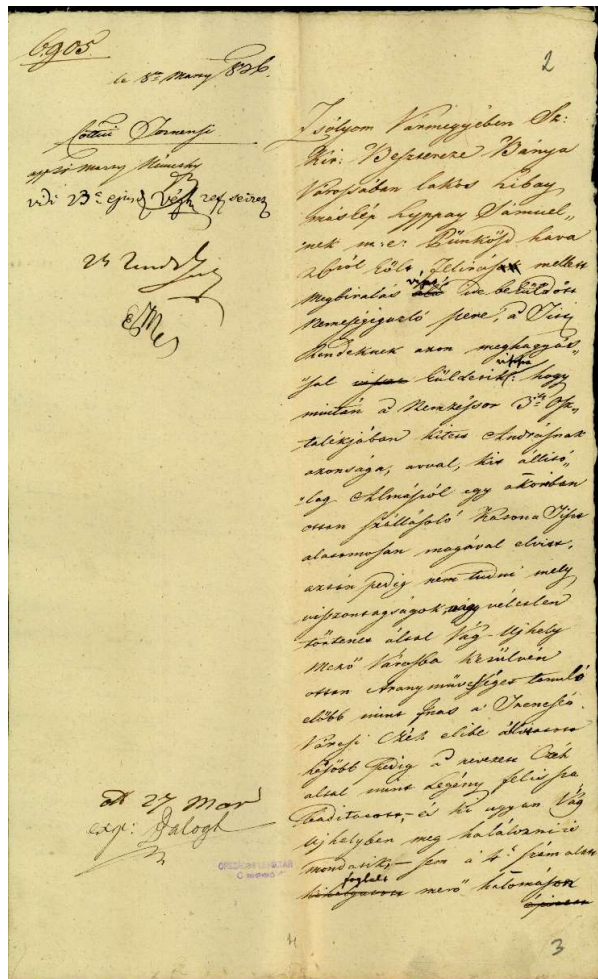 6905.
2
de 8a Marty 836.
Cottui Tornensi
23
27 Mar
exp: Balogh
Zsólyom Vármegyében Sz:
Kir: Besztercze Bánya
Városában lakos Libay
máskép Hyppay Sámuel„
„nek m: e: Pünkösd hava
költ, Felirás mellett
megbirálás végett ide beküldött
Nemességigazló pere, a Tisz
Rendeknek azon meghagyás„
„sal vissza küldetik: hogy
miután a Nemkéssor 3ik Osz„
talékjában Kitcs Andrásnak
azonsága, avval, kit állitó„
„lag Almásról egy akkorban
ottan szállásoló Katona Tiszt
alattomosan magával elvitt,
aztán pedig nem tudni mely
viszontagságok, vagy véletlen
történet által Vág-Ujhely
Mező Városba kerülvén
ottan Aranymüvességet tanuló
előbb mint Inas a Trencséni
Városi Czéh elibe
később pedig a nevezett Czéh
által mint Legény felszaba
badittatott,– és ki ugyan Vág
Ujhelyben meg halálozni is
mondatik,– sem a 4. szám alatt
foglalt merő hallomáson
ORSZÁGOS LEVÉLTÁR
3